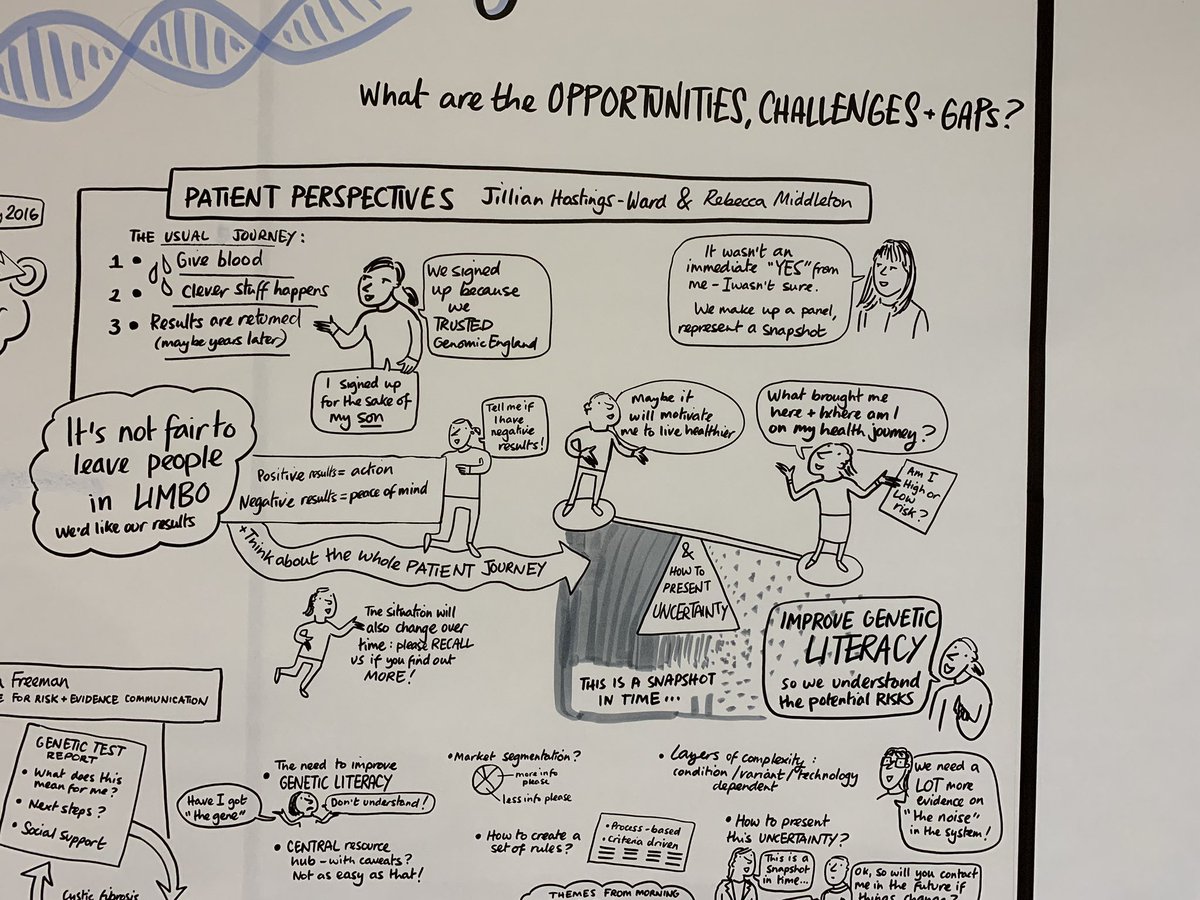 What are the OPPORTUNITIES, CHALLENGES + GAPS?
2016
PATIENT PERSPECTIVES Jillian Hastings-Ward & Rebecca Middleton
THE USUAL JOURNEY:
1 • Give blood
2 • Clever stuff happens
3 • Results are returned
(maybe years later)
We signed
up because
we
TRUSTED
Genomic England
I signed up
for the sake of
my son
It wasn't an
immediate "YES" from
me - I wasn't sure.
We make up a panel,
represent a snapshot
It's not fair to
leave people
in LIMBO
We'd like our results
Positive results = action
Negative results = peace of mind
Tell me if
I have
negative
results!
Maybe it
will motivate
me to live healthier
What brought me
here + where am I
on my health journey?
Am I
High or
Low
risk?
* Think about the whole PATIENT JOURNEY
The situation will
also change over
time: please RECALL
us if you find out
MORE!
&
HOW TO
PRESENT
UNCERTAINTY
THIS IS A SNAPSHOT
IN TIME...
IMPROVE GENETIC
LITERACY
so we understand
the potential RISKS
Freeman
FOR RISK + EVIDENCE COMMUNICATION
GENETIC TEST
REPORT
• What does this
mean for me?
• Next steps?
• Social support
Cystic fibrosis
• The need to improve
GENETIC LITERACY
Have I got
"the gene"
Don't understand!
• CENTRAL resource
hub - with caveats?
Not as easy as that!
• Market segmentation?
more info
please
less info please
• How to create a
set of rules?
• Process-based
• Criteria driven
THEMES FROM MORNING
• Layers of complexity:
condition/variant/technology
dependent
• How to present
this UNCERTAINTY?
We need a
LOT more
evidence on
"the noise"
in the system!
This is a
snapshot
in time...
OK, so will you contact
me in the future if
things change?